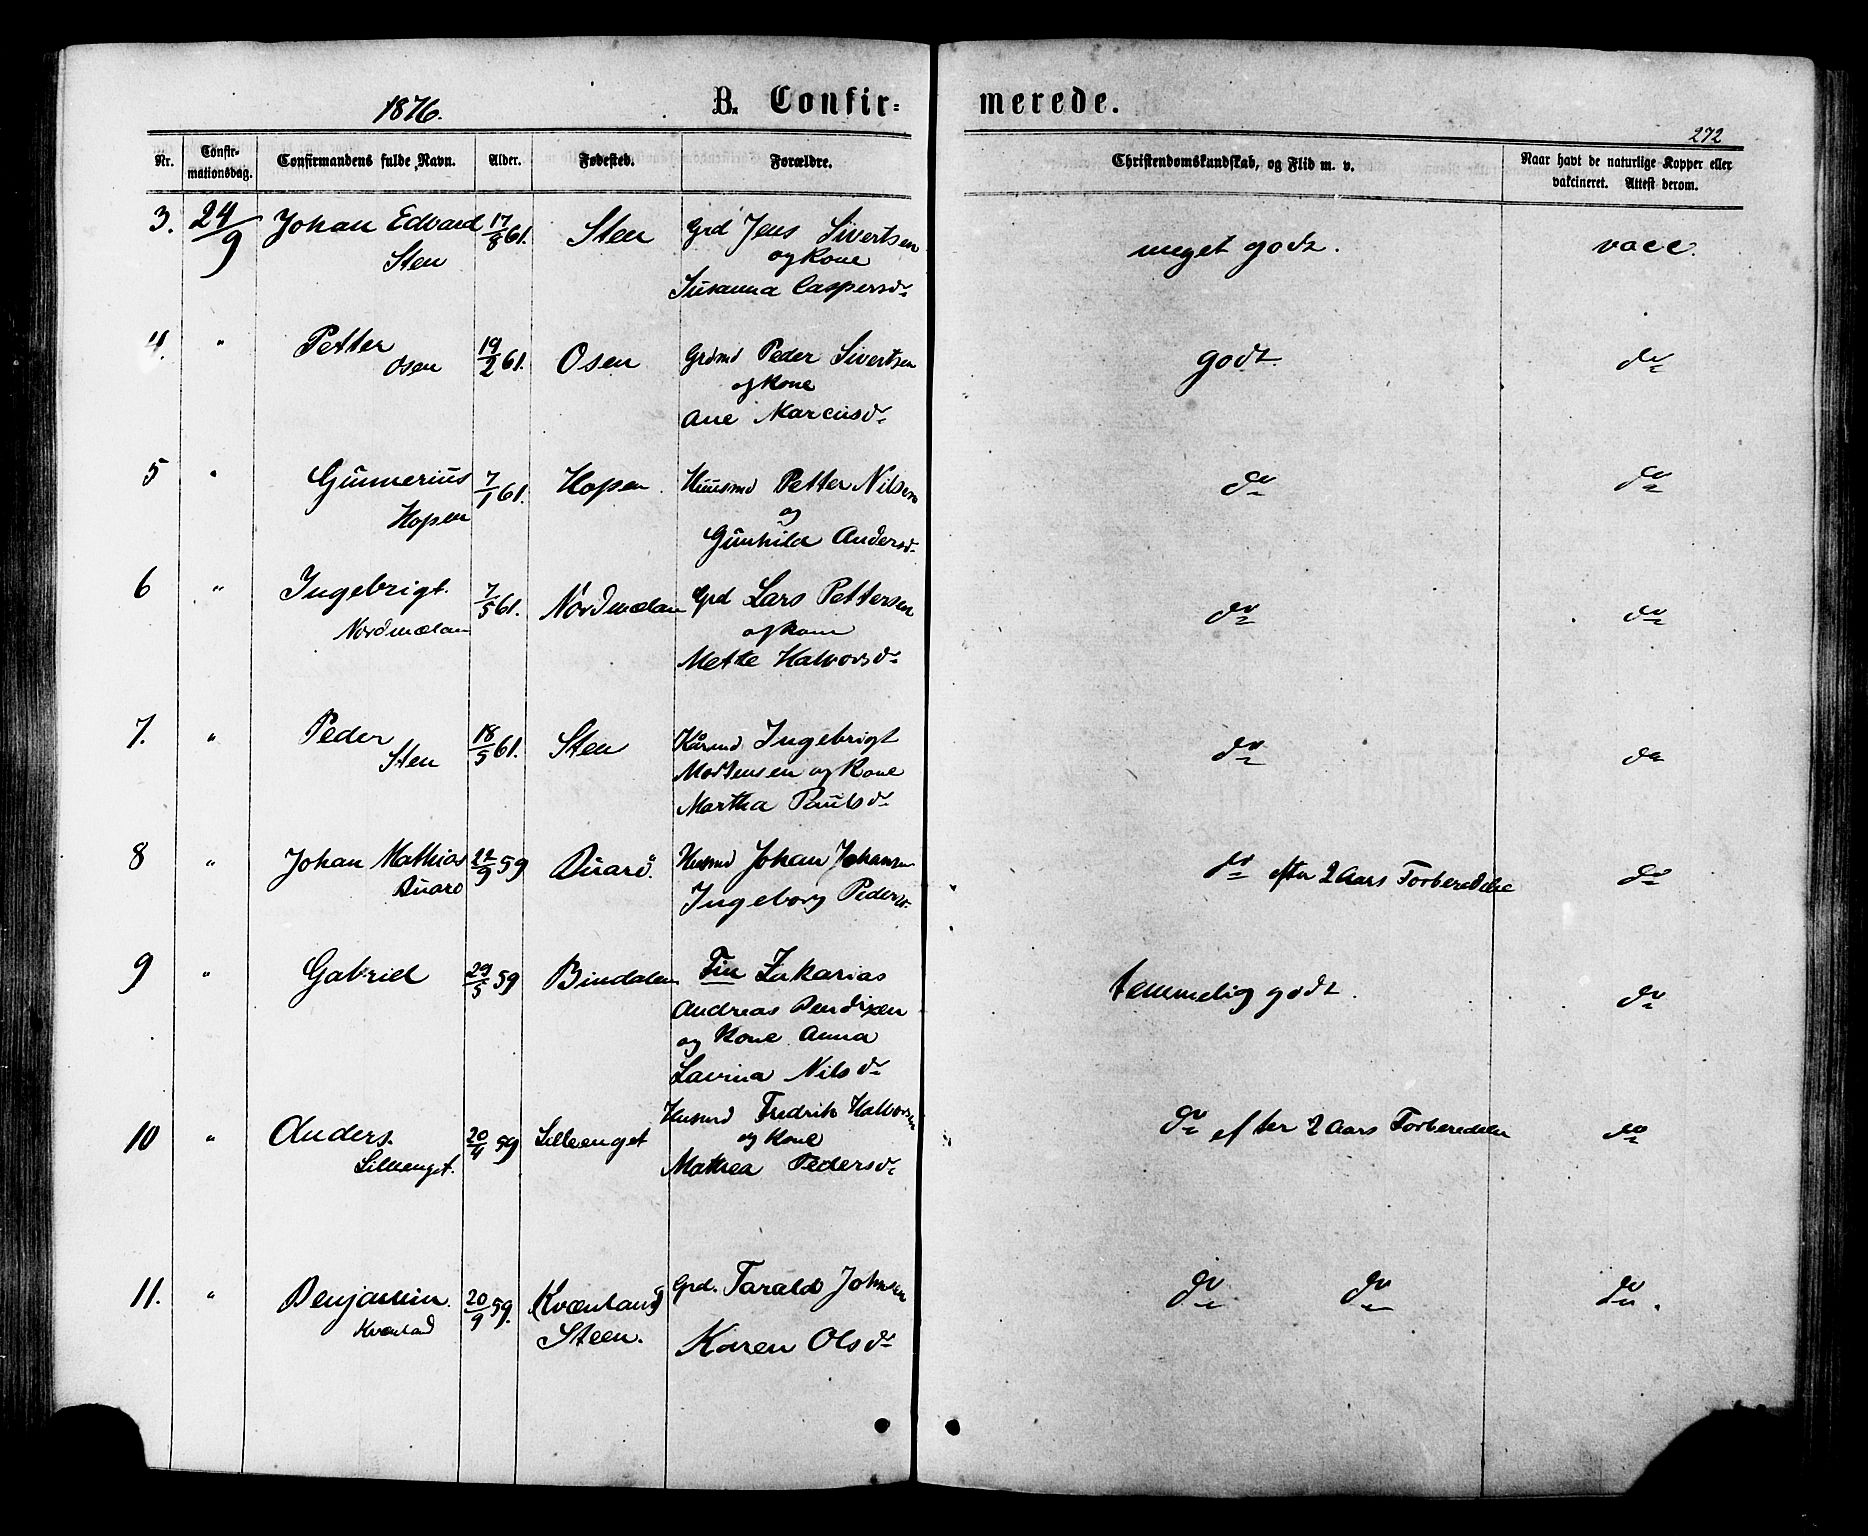 1876.
B. Confir=
merede.
272
Nr.
Confir-
mationsdag.
Confirmandens fulde Navn.
Alder.
Fødested.
Forældre.
Christendomskundskab, og Flid m. v.
Naar havt de naturlige Kopper eller
vakcineret. Attest derom.
3. 24/9 Johan Edvard 17/8 61. Sten Grd Jens Sivertsen meget godt. vacc.
Sten og Kone
Susanna Caspersd.
4. " Petter 19/2 61. Osen Grdmd Peder Sivertsen godt. do
Osen og Kone
Ane Marcusd.
5 " Gunnerius 7/1 61. Hopen Huusmd Petter Nilsen do do
Hopen og
Gunhild Andersd.
6 " Ingebrigt. 7/5 61. Nordmelan Grd Lars Pettersen do do
Nordmelan og Kone
Mette Halvorsd.
7. " Peder 18/5 61. Sten Kårmd Ingebrigt do do
Sten Mortensen og Kone
Martha Paulsd.
8 " Johan Mathias 22/9 59 Buarø. Husmd Johan Johansen do efter 2 Aars Forberedelse do
Buarø Ingeborg Pedersd.
9 " Gabriel 29/5 59 Bindalen Fin Zakarias temmelig godt. do
Andreas Bendixen
og Kone Anna
Lavina Nilsd.
10 " Anders. 20/4 59 Lilleenget Husmd Fredrik Halvorsen do efter 2 Aars Forberedelse do
Lilleenget. og Kone
Mathea Pedersd.
11. " Benjamin. 20/9 59. (Kvenland) Grd. Tarald Johnsen do do do.
Kvenland Steen. Karen Olsd.